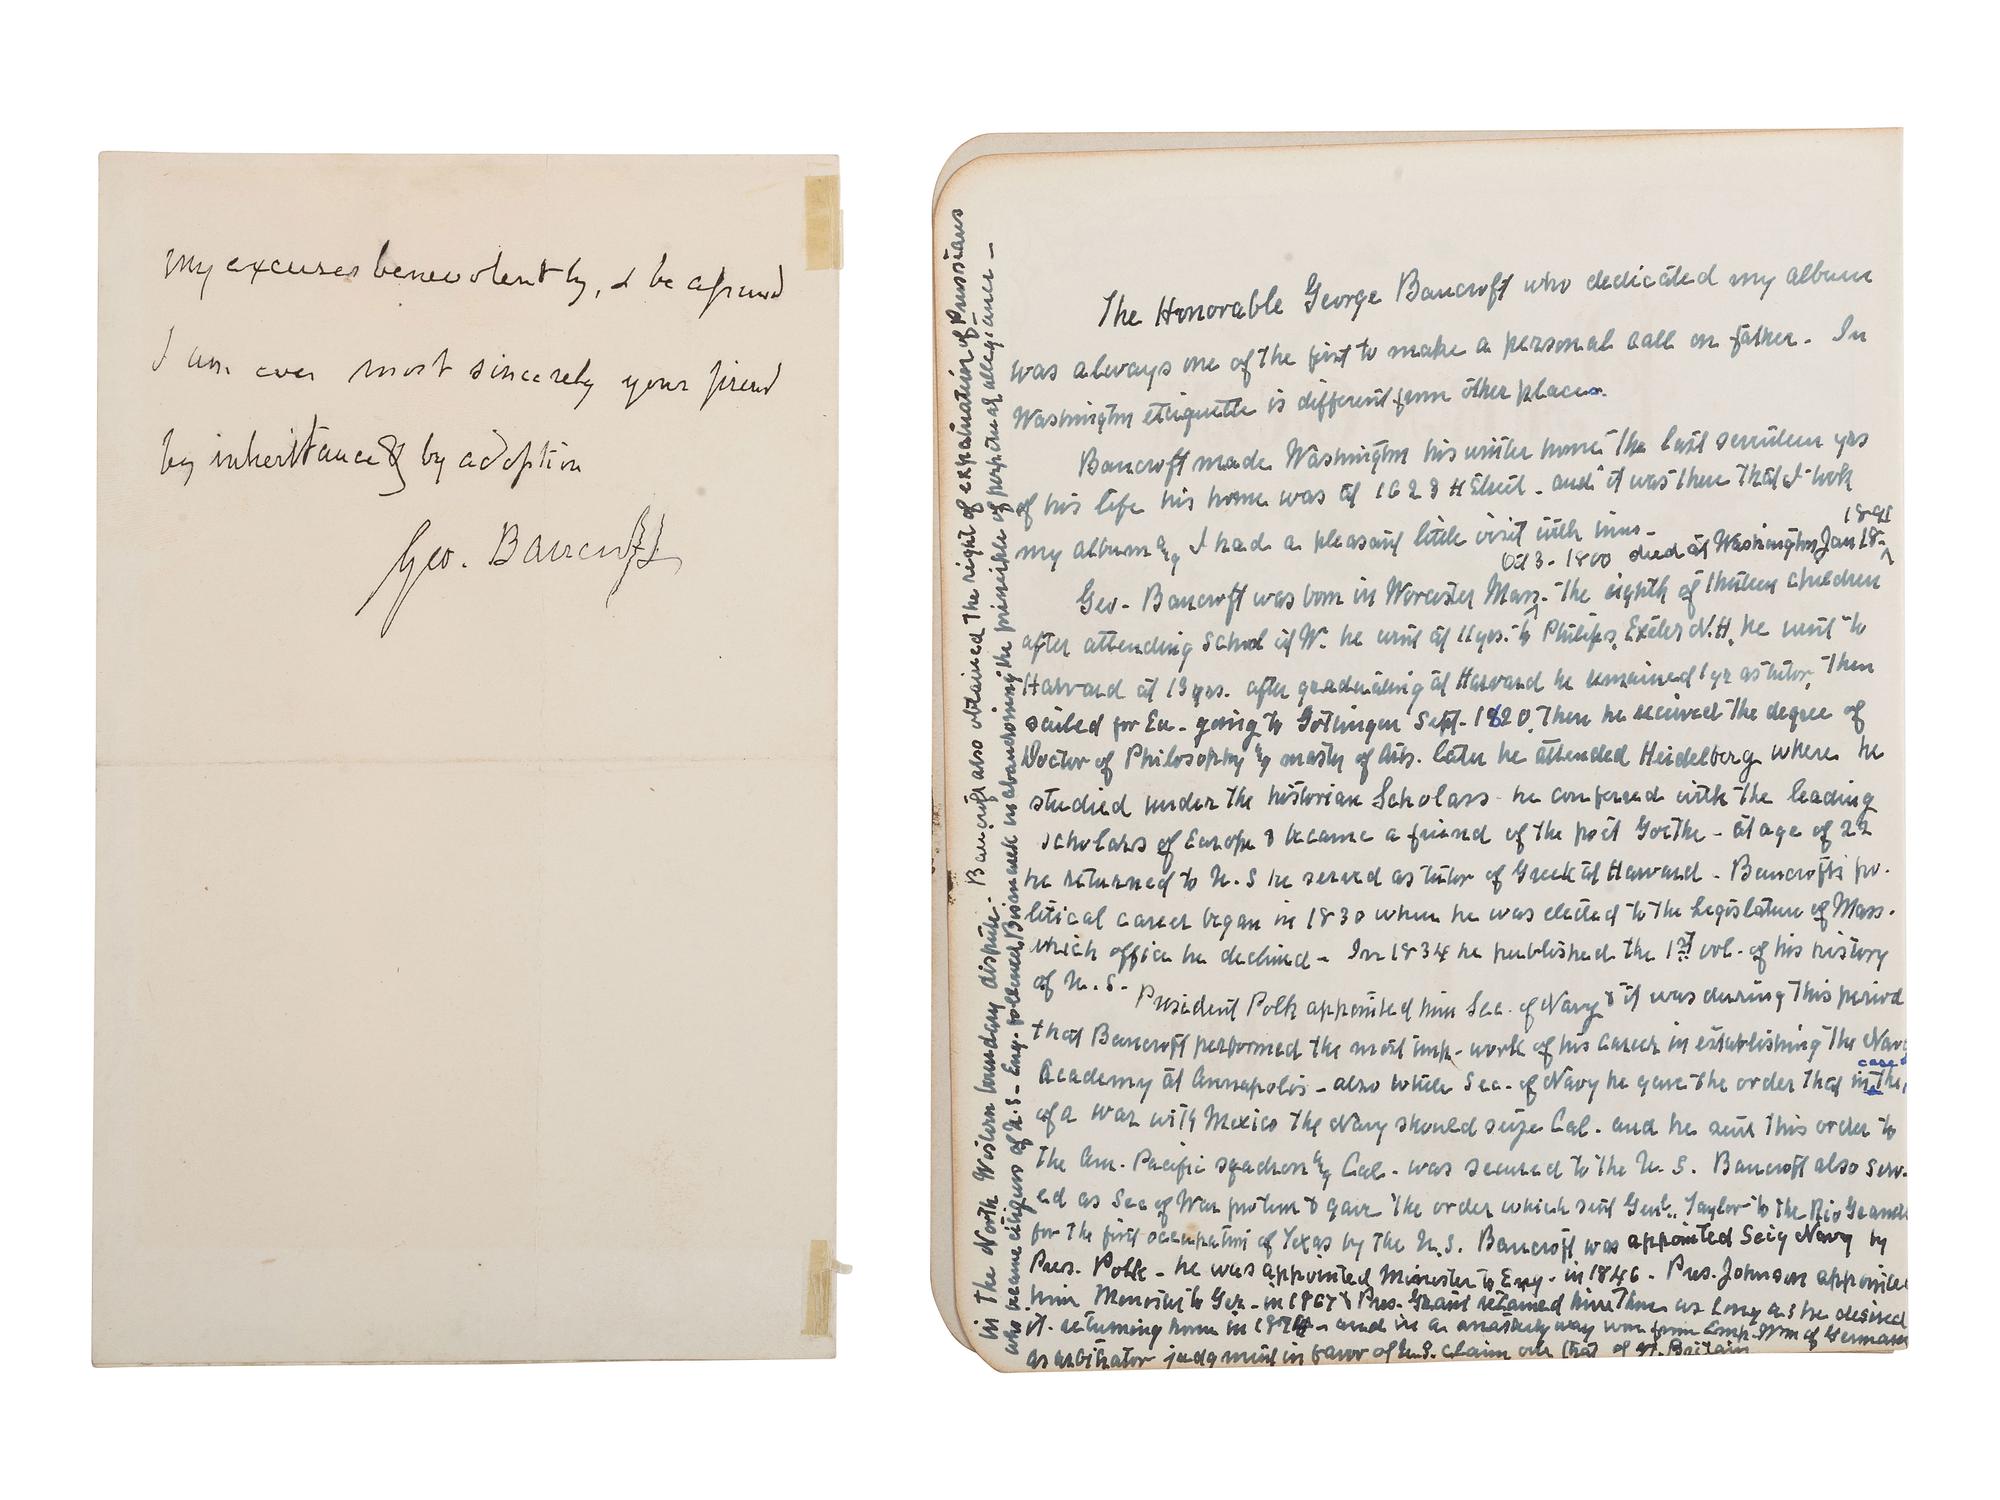 My excuses benevolently, & be assured
I am ever most sincerely your friend
by inheritance & by adoption
Geo. Bancroft
The Honorable George Bancroft who dedicated my album
was always one of the first to make a personal call on father. In
Washington etiquette is different from other places.
Bancroft made Washington his winter home the last seventeen yrs
of his life his home was at 1623 H Street. and it was there that I took
my album & I had a pleasant little visit with him.
1891
Oct 3. 1800 died at Washington Jan 18.
Geo. Bancroft was born in Worcester Mass. The eighth of thirteen children
after attending school at W. he went at 11 yrs. to Philips, Exeter N.H. he went to
Harvard at 13 yrs. after graduating at Harvard he remained 1 yr as tutor, Then
sailed for Eu. going to Gottingen Sept. 1820. Then he received the degree of
Doctor of Philosophy & master of Arts. later he attended Heidelberg where he
studied under the historian Scholass. he conferred with the leading
scholars of Europe & became a friend of the poet Goethe - at age of 22
he returned to U.S he served as tutor of Greek at Harvard. Bancroft's po-
litical career began in 1830 when he was elected to the Legislature of Mass.
which office he declined - In 1834 he published the 1st vol. of his history
of U.S.
President Polk appointed him Sec. of Navy & it was during this period
that Bancroft performed the most imp. work of his career in establishing the
Academy at Annapolis - also while Sec. of Navy he gave the order that in the
case
of a war with Mexico the Navy should seize Cal. and he sent this order to
the Am. Pacific sqadron & Cal. was secured to the U.S. Bancroft also serv-
ed as Sec of War protem & gave the order which sent Genl. Taylor to the Rio
for the first occupation of Texas by the U.S. Bancroft was appointed Secy Navy by
Pres. Polk - he was appointed Minister to Eng. in 1846 - Pres. Johnson
him to Ger. in 1867 & Pres. Grant retained him there as long as he desired
it. returning home in 1874 - and in a masterly way won from Emp. Wm of
as arbitrator judgment in favor of U.S. claim over that of Gt. Britain
in the North Western boundary dispute. Bancroft also obtained the right of expatriation of Prussians
who became citizens of U.S. - Eng. followed Bismarck in abandoning the principle of perpetual allegiance -